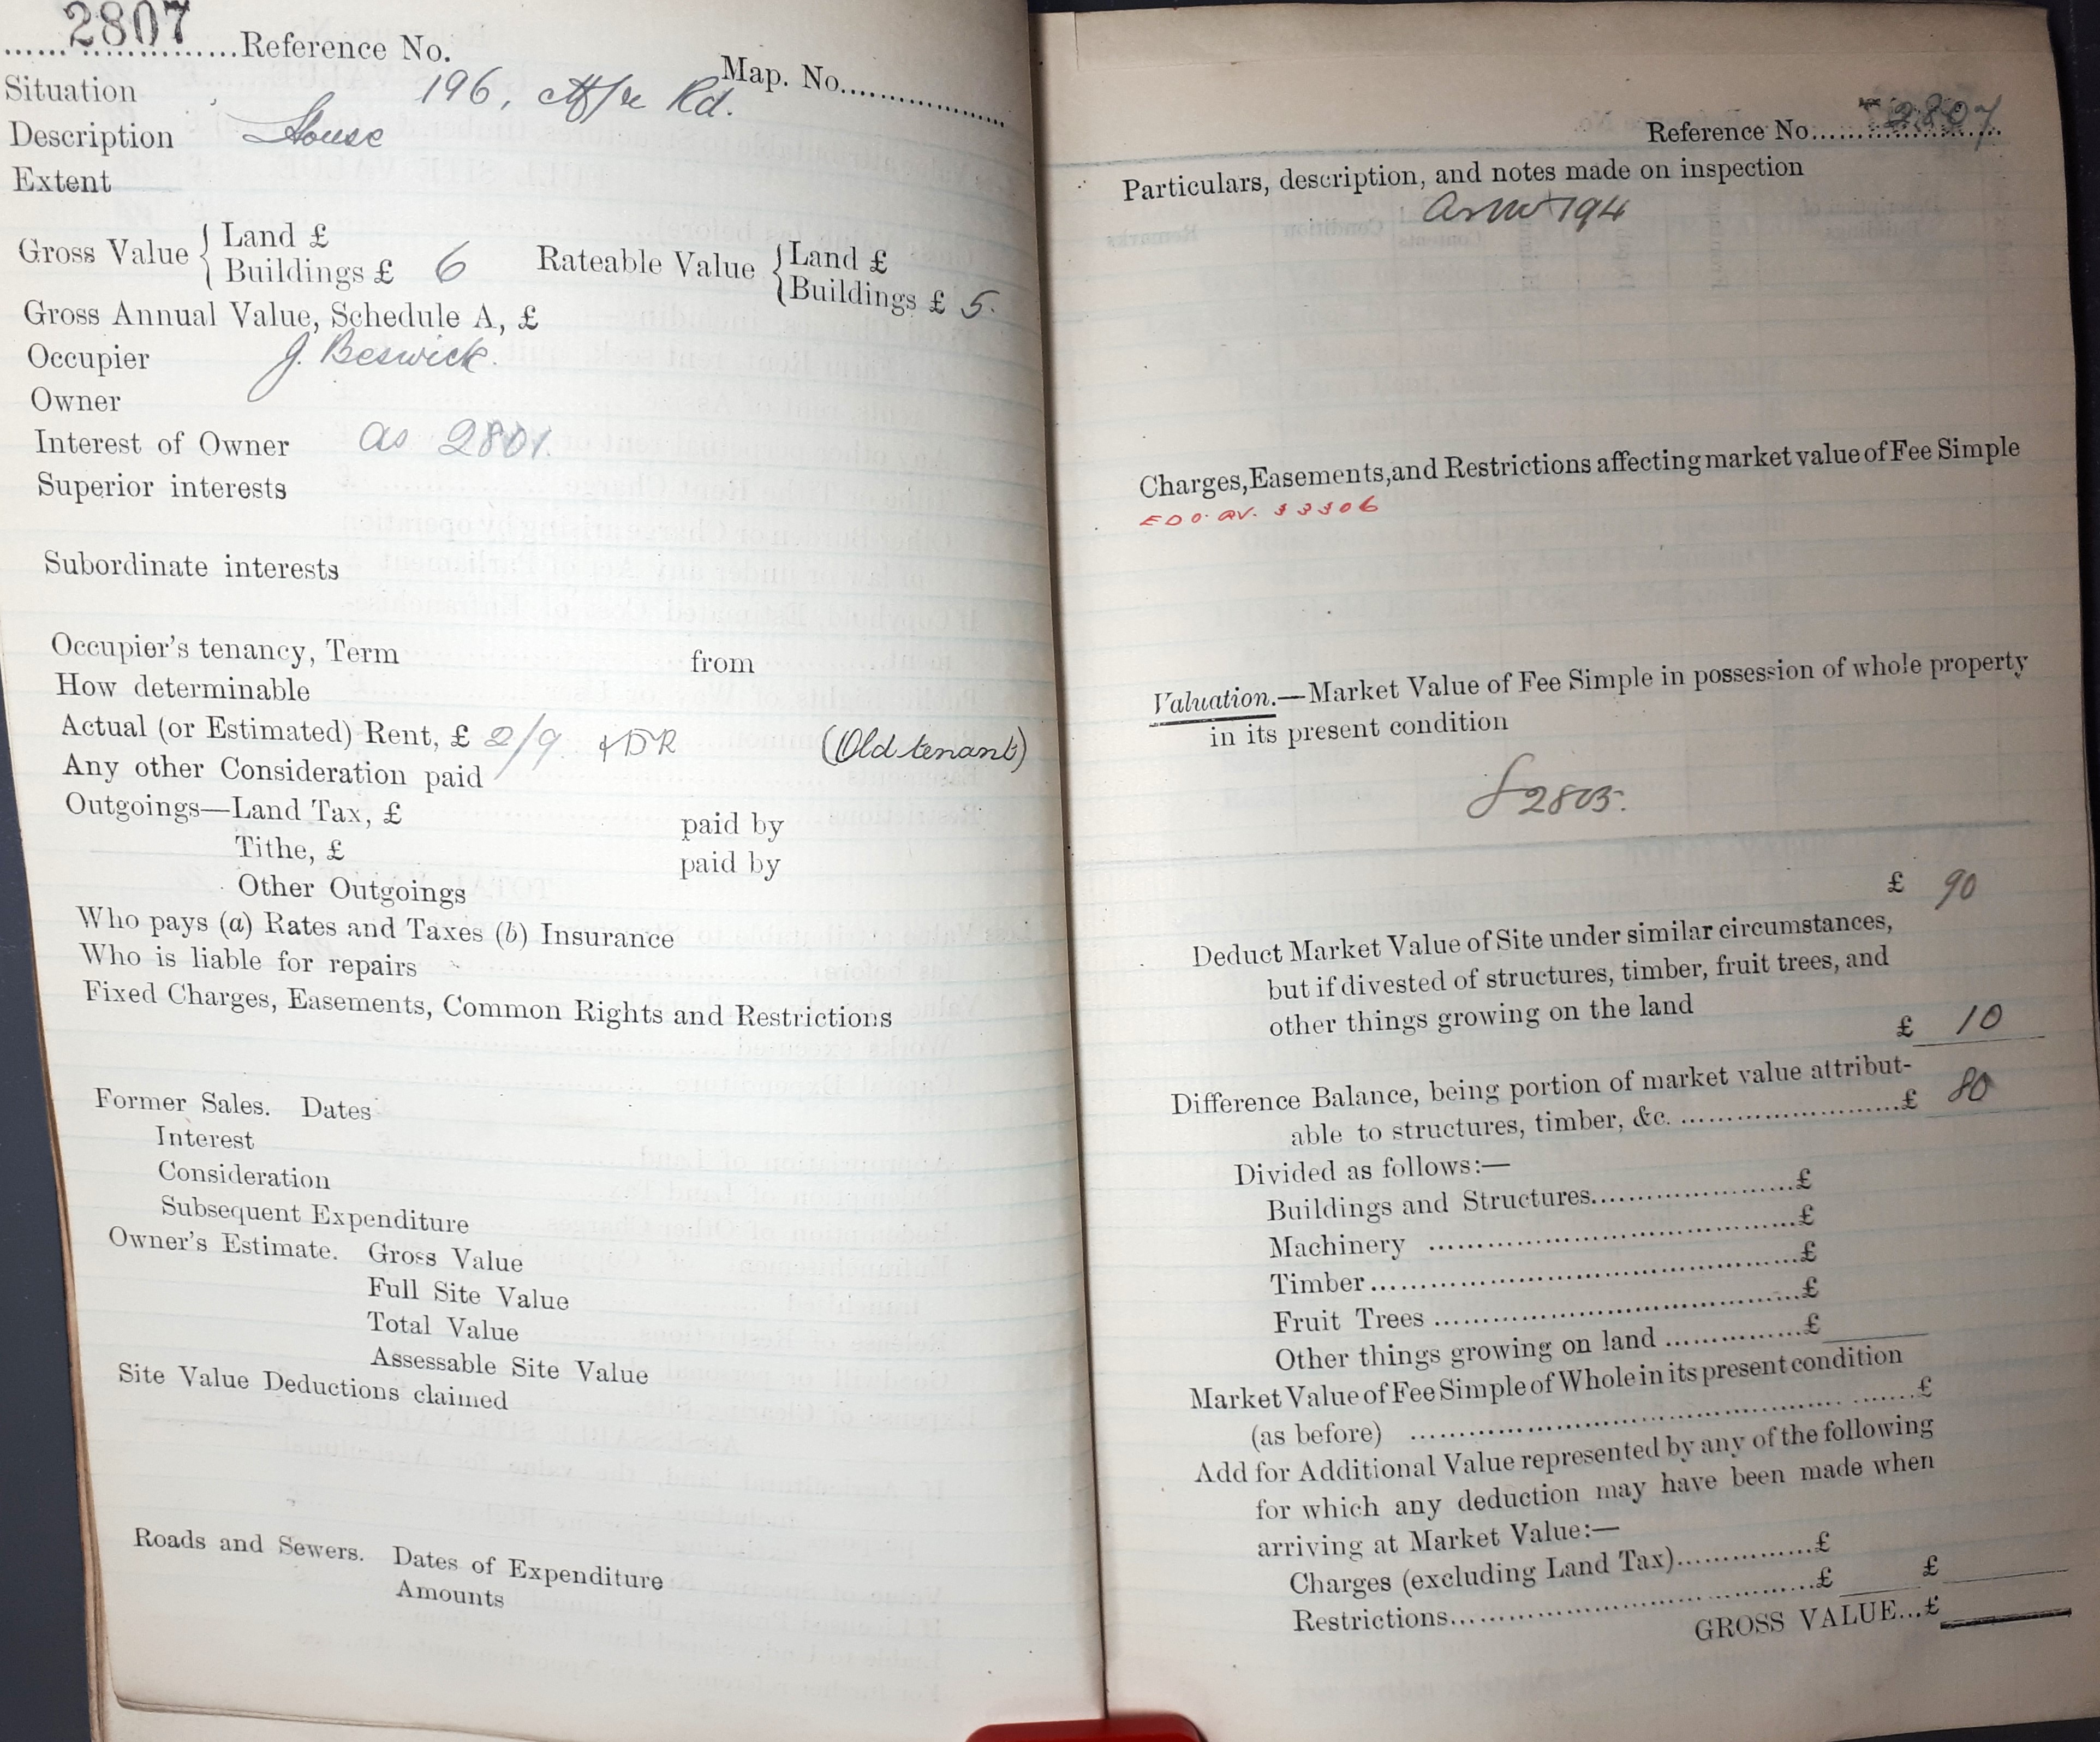 2807
Reference No.
Map. No.
Situation 196, Rd.
Description House
Extent
Gross Value { Land £
Buildings £ 6
Rateable Value { Land £
Buildings £ 5.
Gross Annual Value, Schedule A, £
Occupier J. Beswick.
Owner
Interest of Owner as 2801.
Superior interests
Subordinate interests
Occupier's tenancy, Term from
How determinable
Actual (or Estimated) Rent, £ 2/9 +DR (Old tenant)
Any other Consideration paid
Outgoings—Land Tax, £ paid by
Tithe, £ paid by
Other Outgoings
Who pays (a) Rates and Taxes (b) Insurance
Who is liable for repairs
Fixed Charges, Easements, Common Rights and Restrictions
Former Sales. Dates
Interest
Consideration
Subsequent Expenditure
Owner's Estimate. Gross Value
Full Site Value
Total Value
Assessable Site Value
Site Value Deductions claimed
Roads and Sewers. Dates of Expenditure
Amounts
Reference No. 2807
Particulars, description, and notes made on inspection
As No 194
Charges, Easements, and Restrictions affecting market value of Fee Simple
Valuation.—Market Value of Fee Simple in possession of whole property
in its present condition
2803.
£ 90
Deduct Market Value of Site under similar circumstances,
but if divested of structures, timber, fruit trees, and
other things growing on the land
£ 10
Difference Balance, being portion of market value attribut-
able to structures, timber, &c. £ 80
Divided as follows:—
Buildings and Structures £
Machinery £
Timber £
Fruit Trees £
Other things growing on land £
Market Value of Fee Simple of Whole in its present condition
(as before) £
Add for Additional Value represented by any of the following
for which any deduction may have been made when
arriving at Market Value:—
Charges (excluding Land Tax) £
Restrictions £ £
GROSS VALUE...£